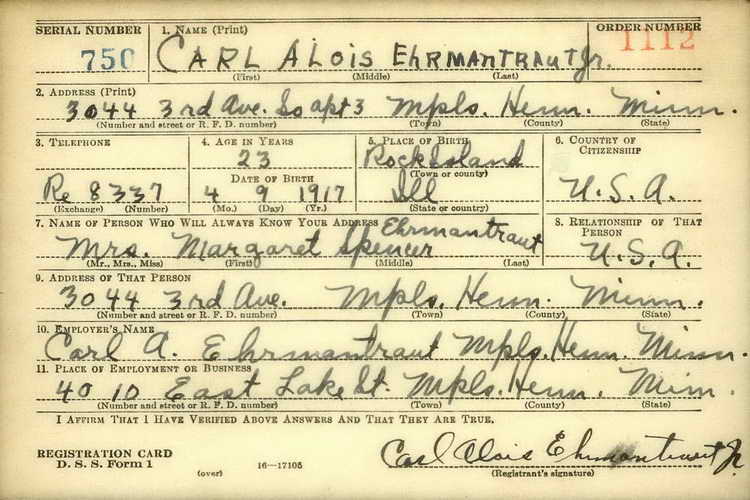 SERIAL NUMBER 1. NAME (Print) ORDER NUMBER
750 CARL ALOIS EHRMANTRAUT Jr. 1112
(First) (Middle) (Last)
2. ADDRESS (Print)
3044 3rd Ave. So apt 3 Mpls. Henn. Minn.
(Number and street or R. F. D. number) (Town) (County) (State)
3. TELEPHONE 4. AGE IN YEARS 5. PLACE OF BIRTH 6. COUNTRY OF CITIZENSHIP
23 Rock Island
DATE OF BIRTH (Town or county)
Re 8337 4 9 1917 Ill U.S.A.
(Exchange) (Number) (Mo.) (Day) (Yr.) (State or country)
7. NAME OF PERSON WHO WILL ALWAYS KNOW YOUR ADDRESS 8. RELATIONSHIP OF THAT PERSON
Mrs. Margaret Spencer Ehrmantraut U.S.A.
(Mr., Mrs., Miss) (First) (Middle) (Last)
9. ADDRESS OF THAT PERSON
3044 3rd Ave. Mpls. Henn. Minn.
(Number and street or R. F. D. number) (Town) (County) (State)
10. EMPLOYER'S NAME
Carl A. Ehrmantraut Mpls. Henn. Minn.
11. PLACE OF EMPLOYMENT OR BUSINESS
4010 East Lake St. Mpls. Henn. Minn.
(Number and street or R. F. D. number) (Town) (County) (State)
I AFFIRM THAT I HAVE VERIFIED ABOVE ANSWERS AND THAT THEY ARE TRUE.
REGISTRATION CARD
D. S. S. Form 1 (over) 16—17105
Carl Alois Ehrmantraut Jr.
(Registrant's signature)